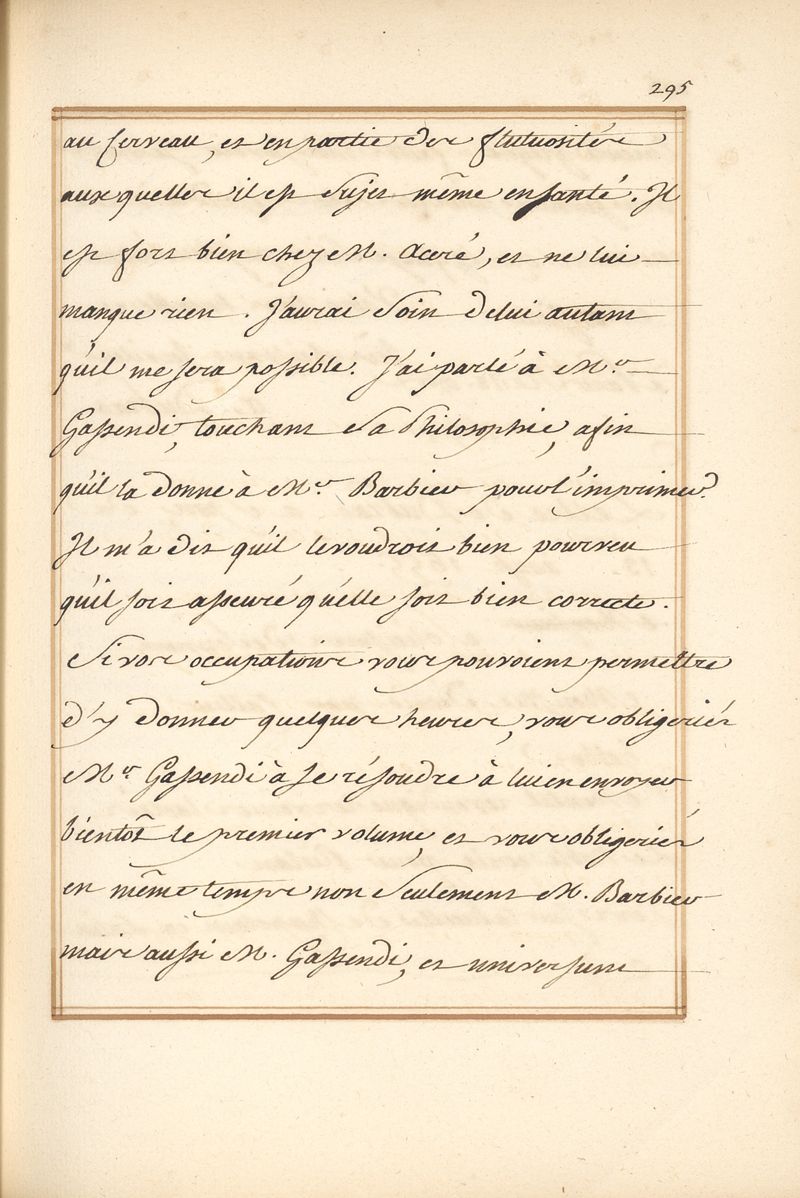 295
au Cerveau, et en partie des flutuosités
aux quelles il est Sujet même en santé. Il
est fort bien chez M. Accré, et ne lui
manque rien. J'aurai Soin de lui autant
qu'il me sera possible. J'ai parlé à Mr
Gassendi, touchant Sa Philosophie, afin
qu'il la donne à Mr Barbier pour l'imprimer.
Il m'a dit qu'il le voudroit bien pourveu
qu'il soit asseuré qu'elle soit bien correcte.
Si vos occupations vous pouvoient permettre
d'y donner quelques heures, vous obligeriés
Mr Gassendi à se résoudre à lui en envoyer
bientôt le premier volume, et vous obligeriés
en même temps non Seulement M. Barbier
mais aussi M. Gassendi, et universum